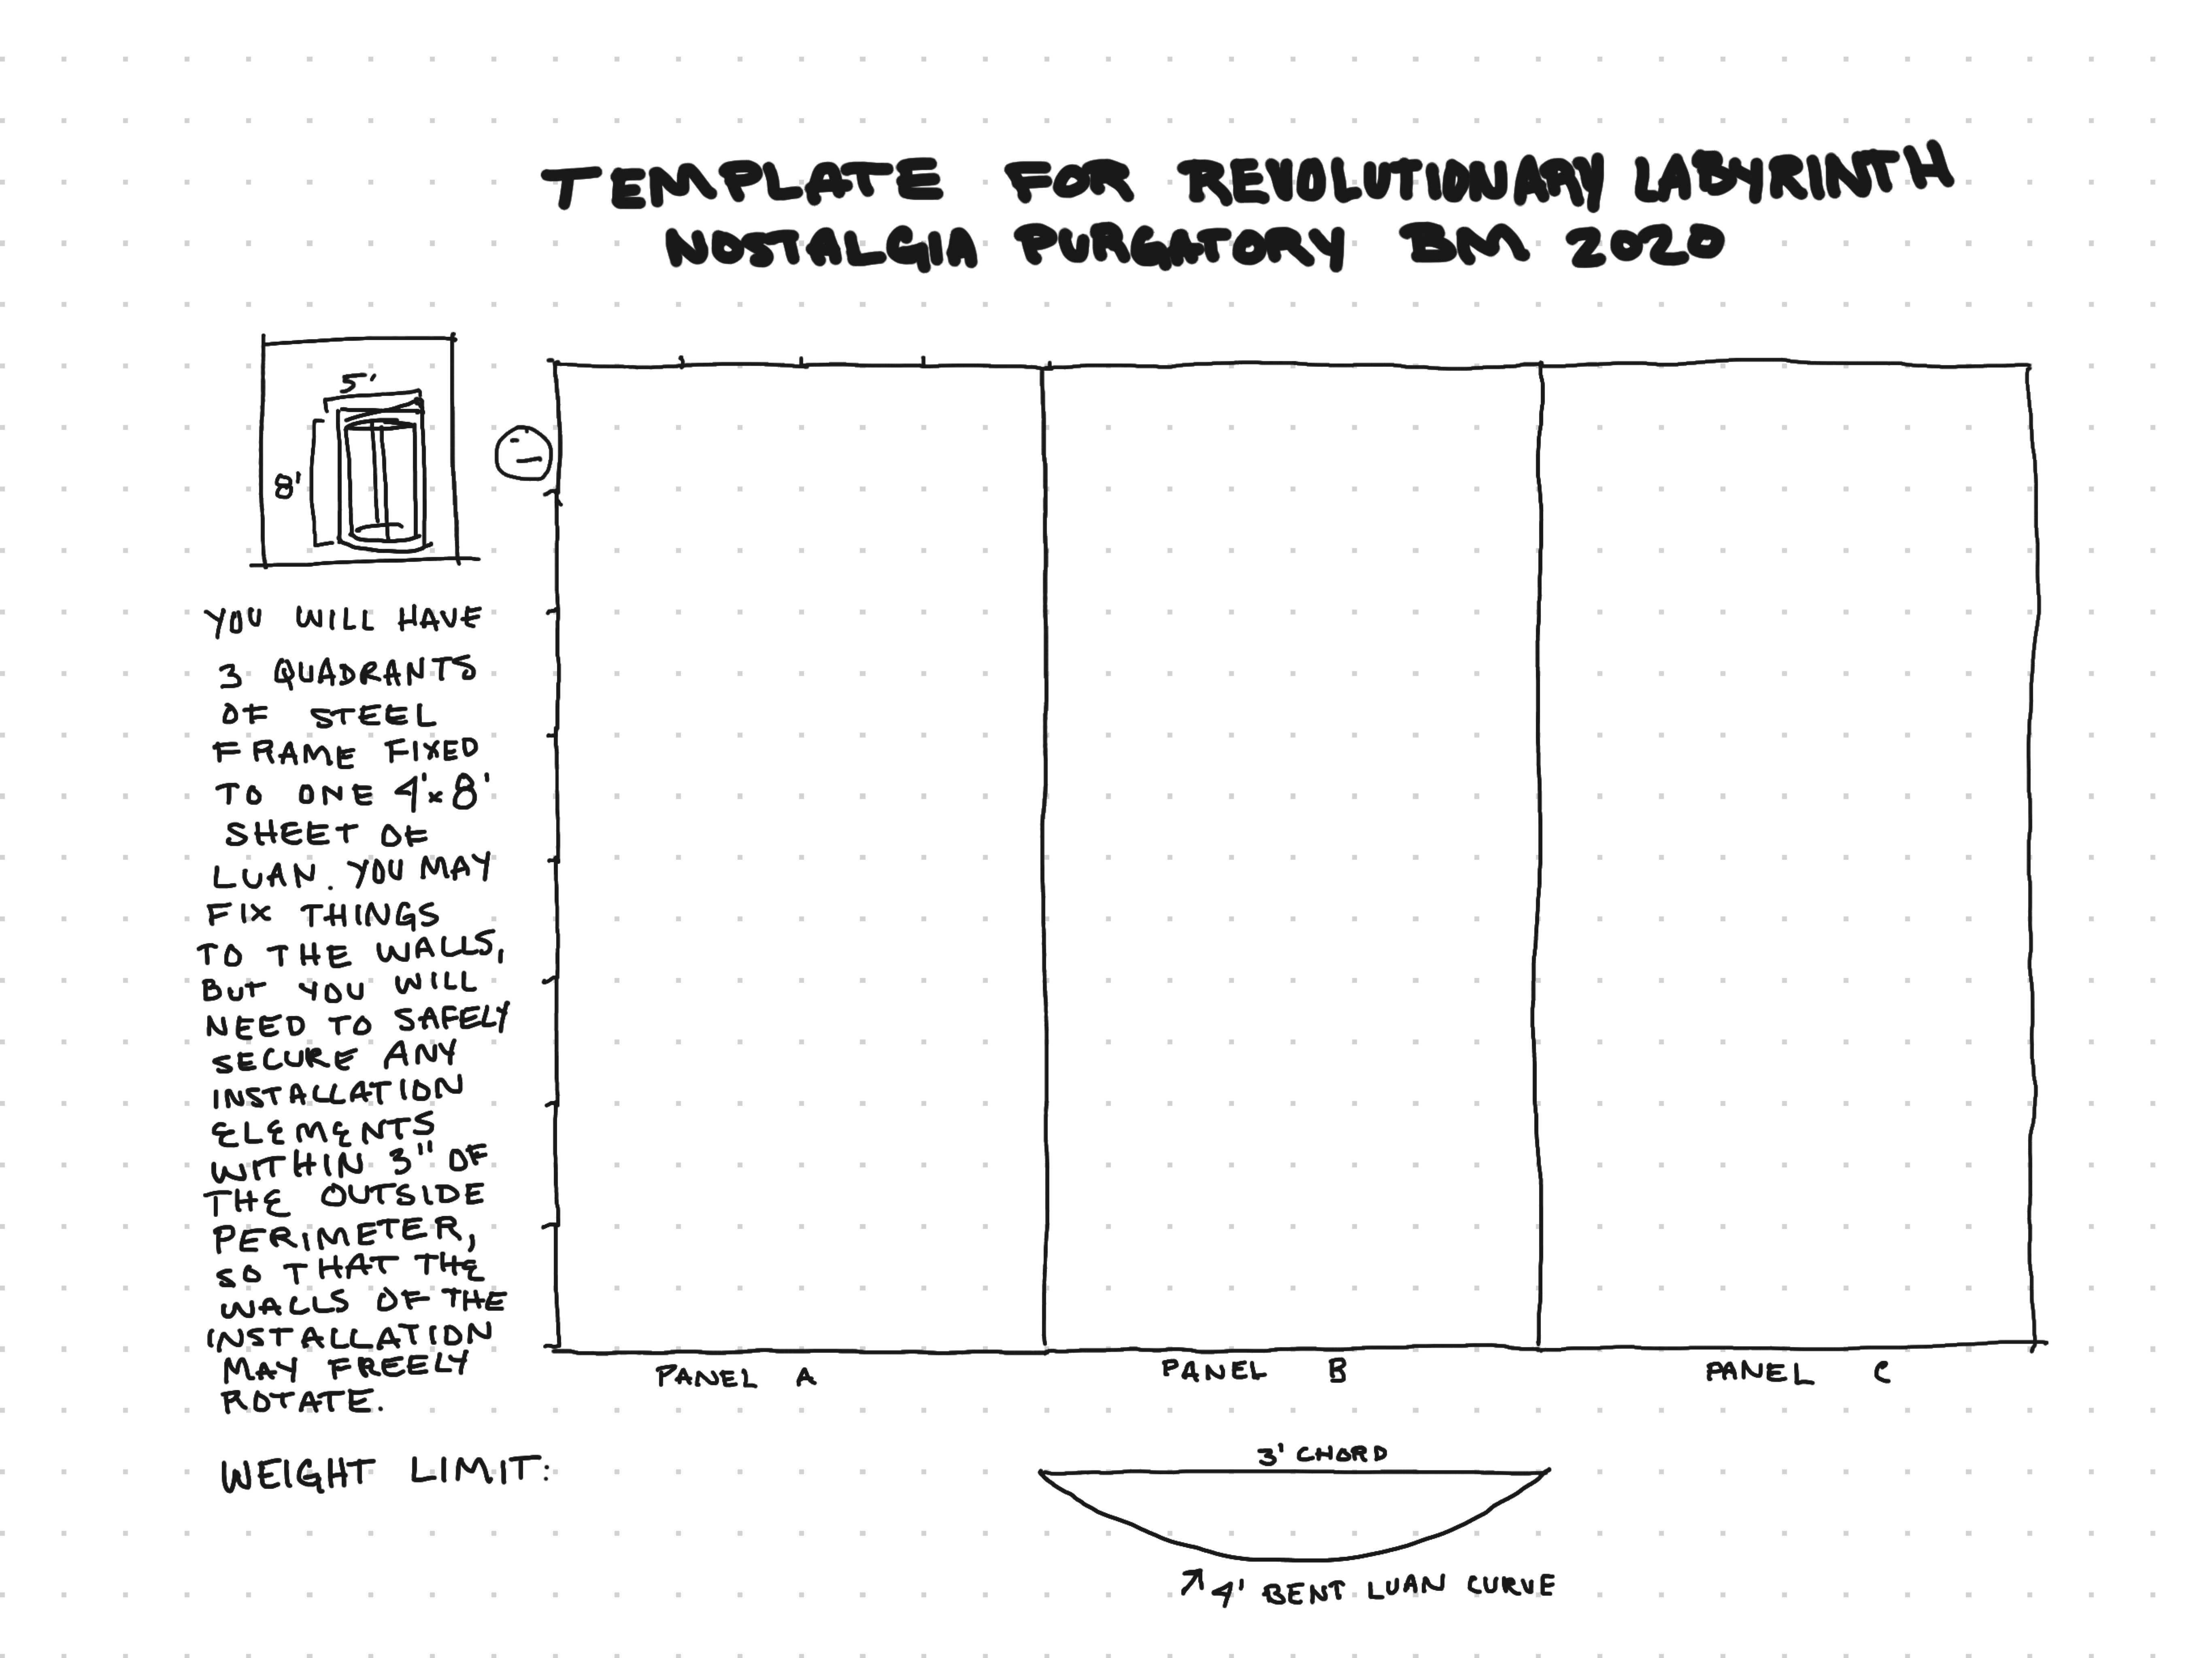 TEMPLATE FOR REVOLUTIONARY LABYRINTH
NOSTALGIA PURGATORY BM 2020
5'
8'
YOU WILL HAVE
3 QUADRANTS
OF STEEL
FRAME FIXED
TO ONE 4'x8'
SHEET OF
LUAN. YOU MAY
FIX THINGS
TO THE WALLS,
BUT YOU WILL
NEED TO SAFELY
SECURE ANY
INSTALLATION
ELEMENTS
WITHIN 3" OF
THE OUTSIDE
PERIMETER,
SO THAT THE
WALLS OF THE
INSTALLATION
MAY FREELY
ROTATE.
WEIGHT LIMIT:
PANEL A
PANEL B
PANEL C
3' CHORD
4' BENT LUAN CURVE